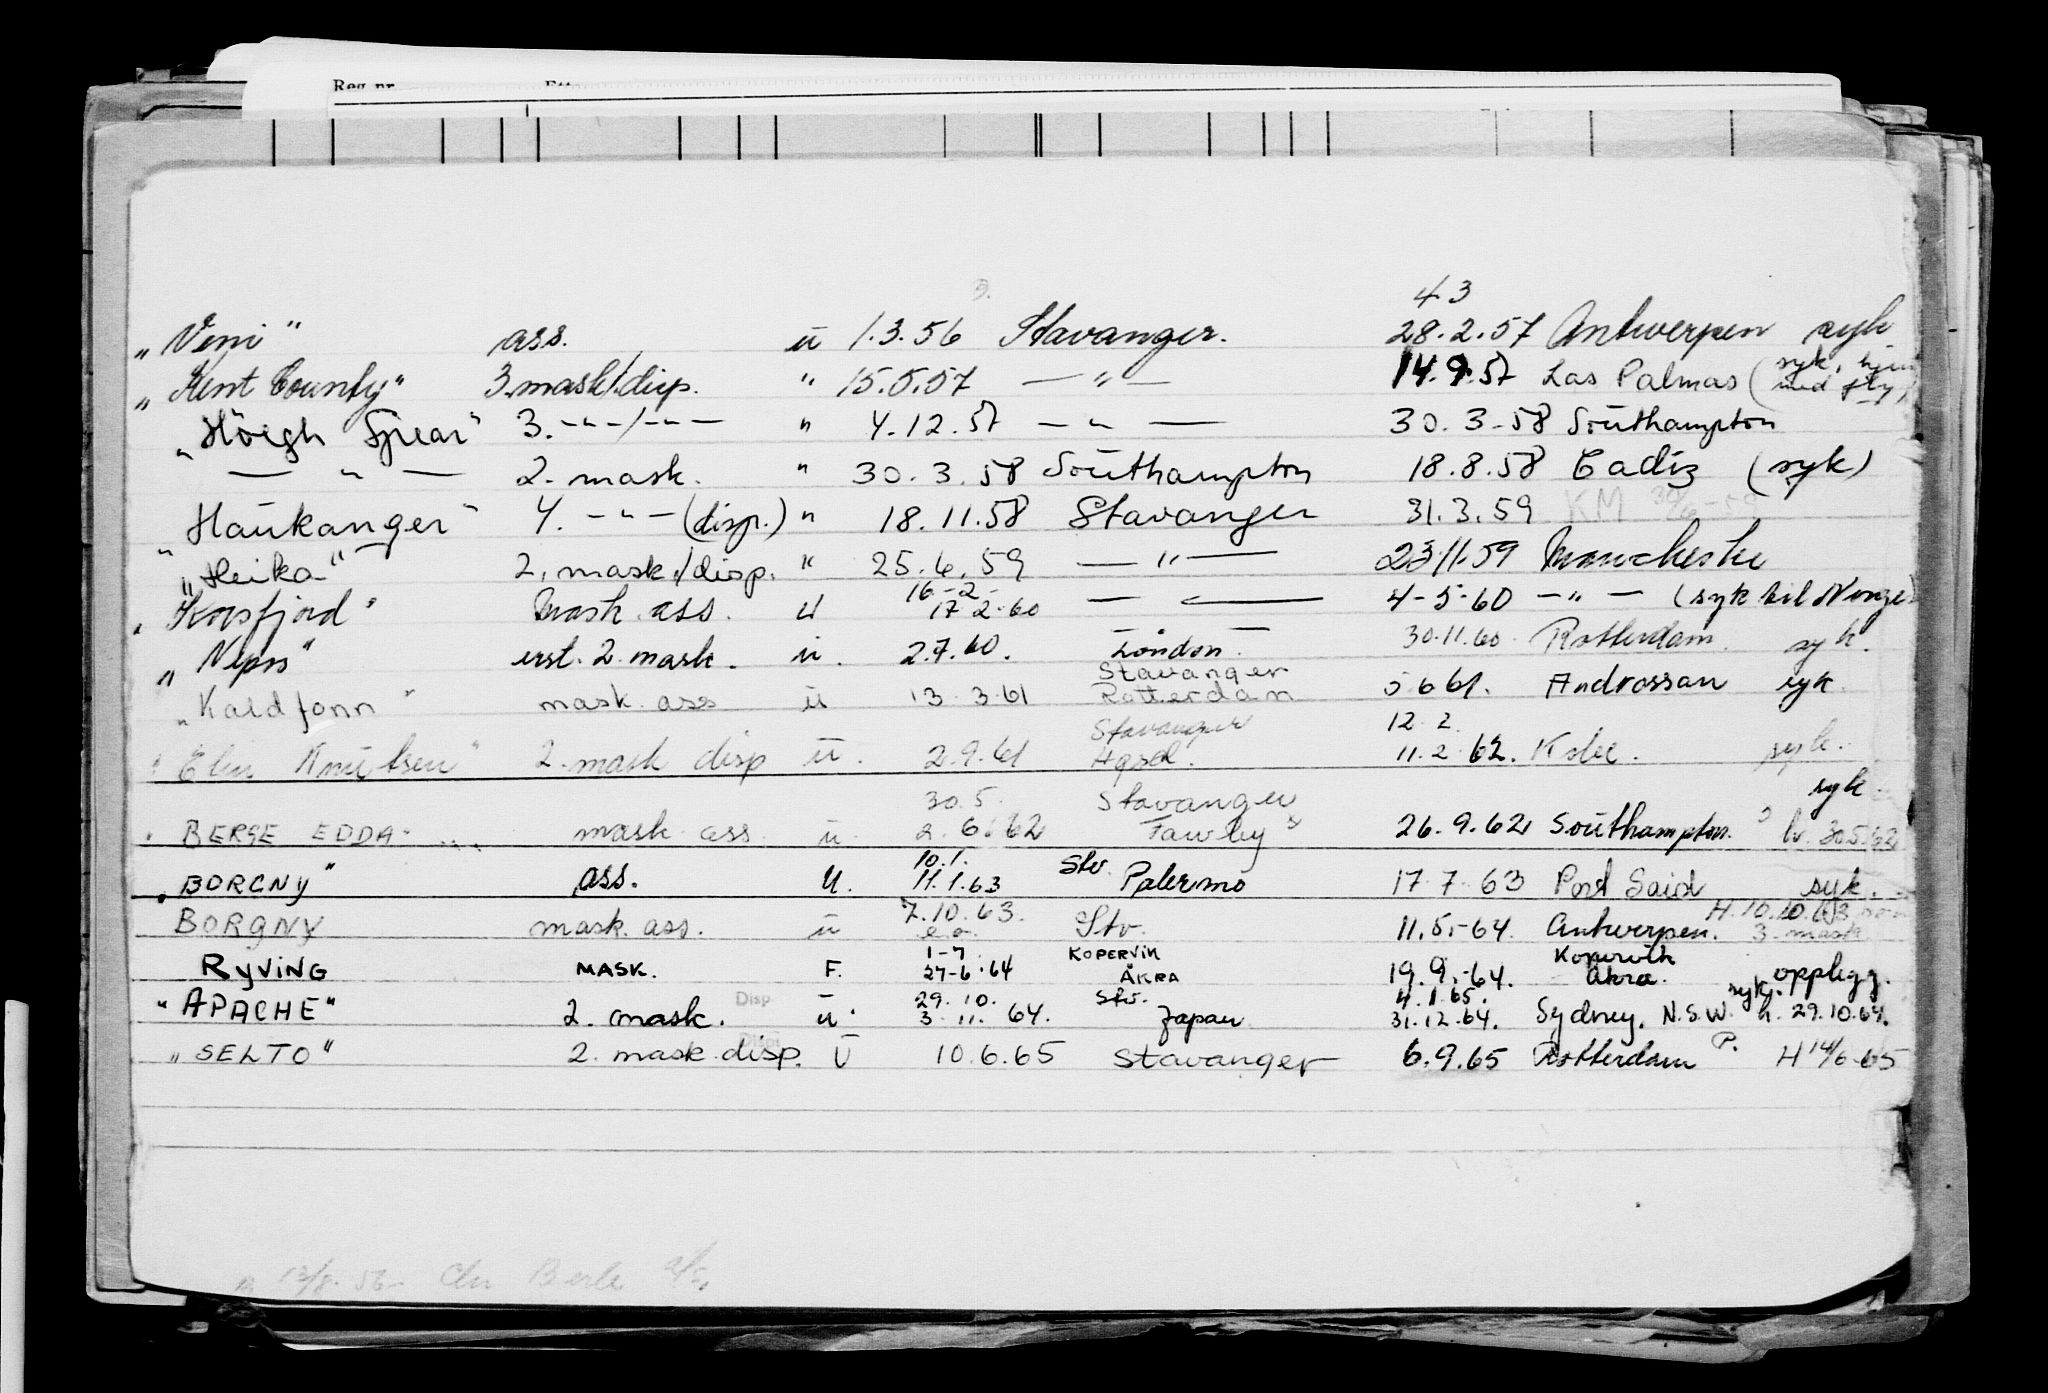 Reg.nr.
4.3
"Veni" ass. ü 1.3.56 Stavanger. 28.2.57 Antwerpen syk
"Kent County" 3.mask/disp. " 15.5.57 — " — 14.9.57 Las Palmas (syk, hjem med fly)
"Höegh Spear" 3. -"-/-"- " 4.12.57 — " — 30.3.58 Southampton
— " — 2. mask. " 30.3.58 Southampton 18.8.58 Cadiz (syk)
"Haukanger" 4. -"- (disp.) " 18.11.58 Stavanger 31.3.59 KM
"Heika" 2. mask./disp. " 25.6.59 — " — 23.11.59 Manchester
16-2-
"Korsfjord" Mask. ass. U 17-2-60 — " — 4-5-60 -"- (syk til Norge)
"Nepis" erst. 2. mask. ü. 2.7.60. London. 30.11.60. Rotterdam. syk.
Stavanger
"Kaldfonn" mask. ass ü 13.3.61 Rotterdam 5.6.61. Androssan syk.
Stavanger 12.2.
"Elin Knutsen" 2. mask disp ü. 2.9.61 11.2.62. Kobe. syk.
30.5. Stavanger syk.
"BERGE EDDA" mask. ass. ü. 2.6.62 Fawley 26.9.62 Southampton. 30.5.62
10.1. Stv.
"BORGNY" ass. U. 11.1.63 Palermo 17.7.63 Port Said syk.
H.10.10.63
BORGNY mask. ass. ü 7.10.63. Stv. 11.5.-64. Antwerpen. 3. mask
1-7 KOPERVIK Kopervik
RYVING MASK. F. 27-6-64 ÅKRA 19.9.-64. Åkra. opplegg.
Disp 29.10. Stv. 4.1.65. syk.
"APACHE" 2. mask. ü. 3.11.64. Japan 31.12.64. Sydney. N.S.W. h. 29.10.64.
"SELTO" 2. mask. disp. Ü 10.6.65 Stavanger 6.9.65 Rotterdam P. H 14/6-65
13/8-56 Chr Berle